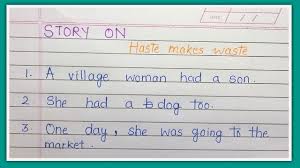 DATE / /
STORY ON
Haste makes waste
1. A village woman had a son.
2 She had a dog too.
3. One day, she was going to the
market.